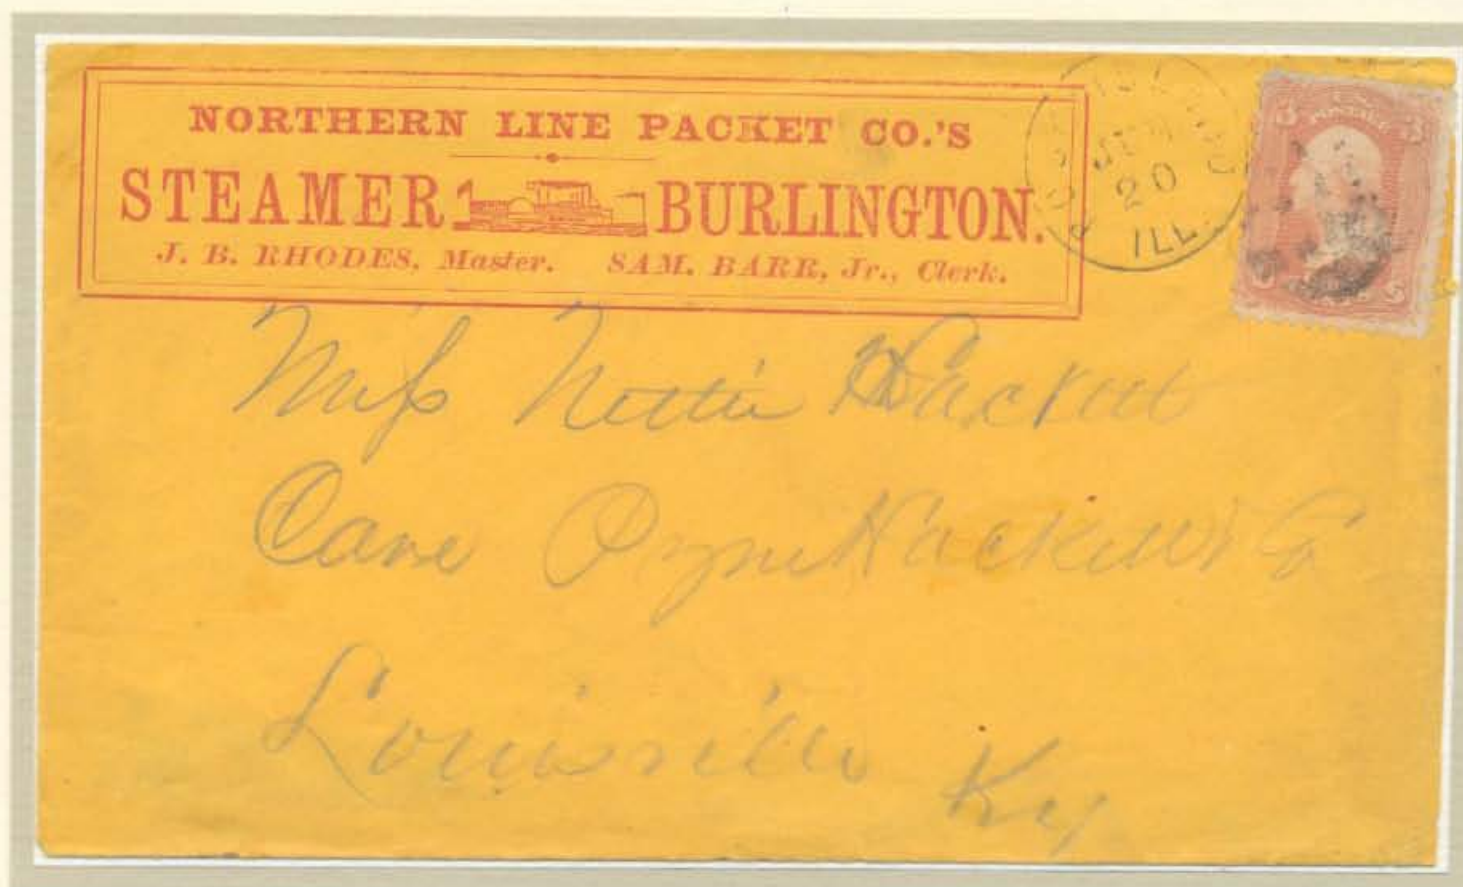 NORTHERN LINE PACKET CO.'S
STEAMER BURLINGTON.
J. B. RHODES, Master. SAM. BARR, Jr., Clerk.
20
ILL.
3 3
POSTAGE
Miss Nettie Hackett
Care Pyne Hackett & Co
Louisville Ky